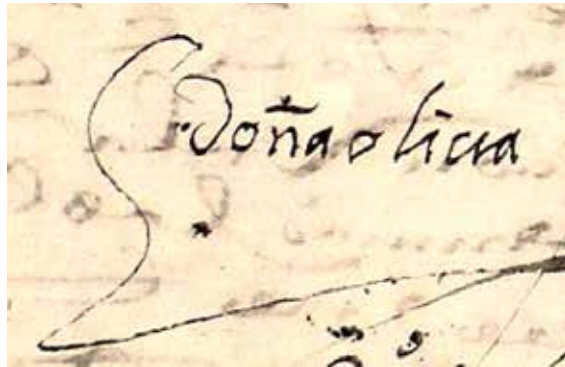 doña olicia